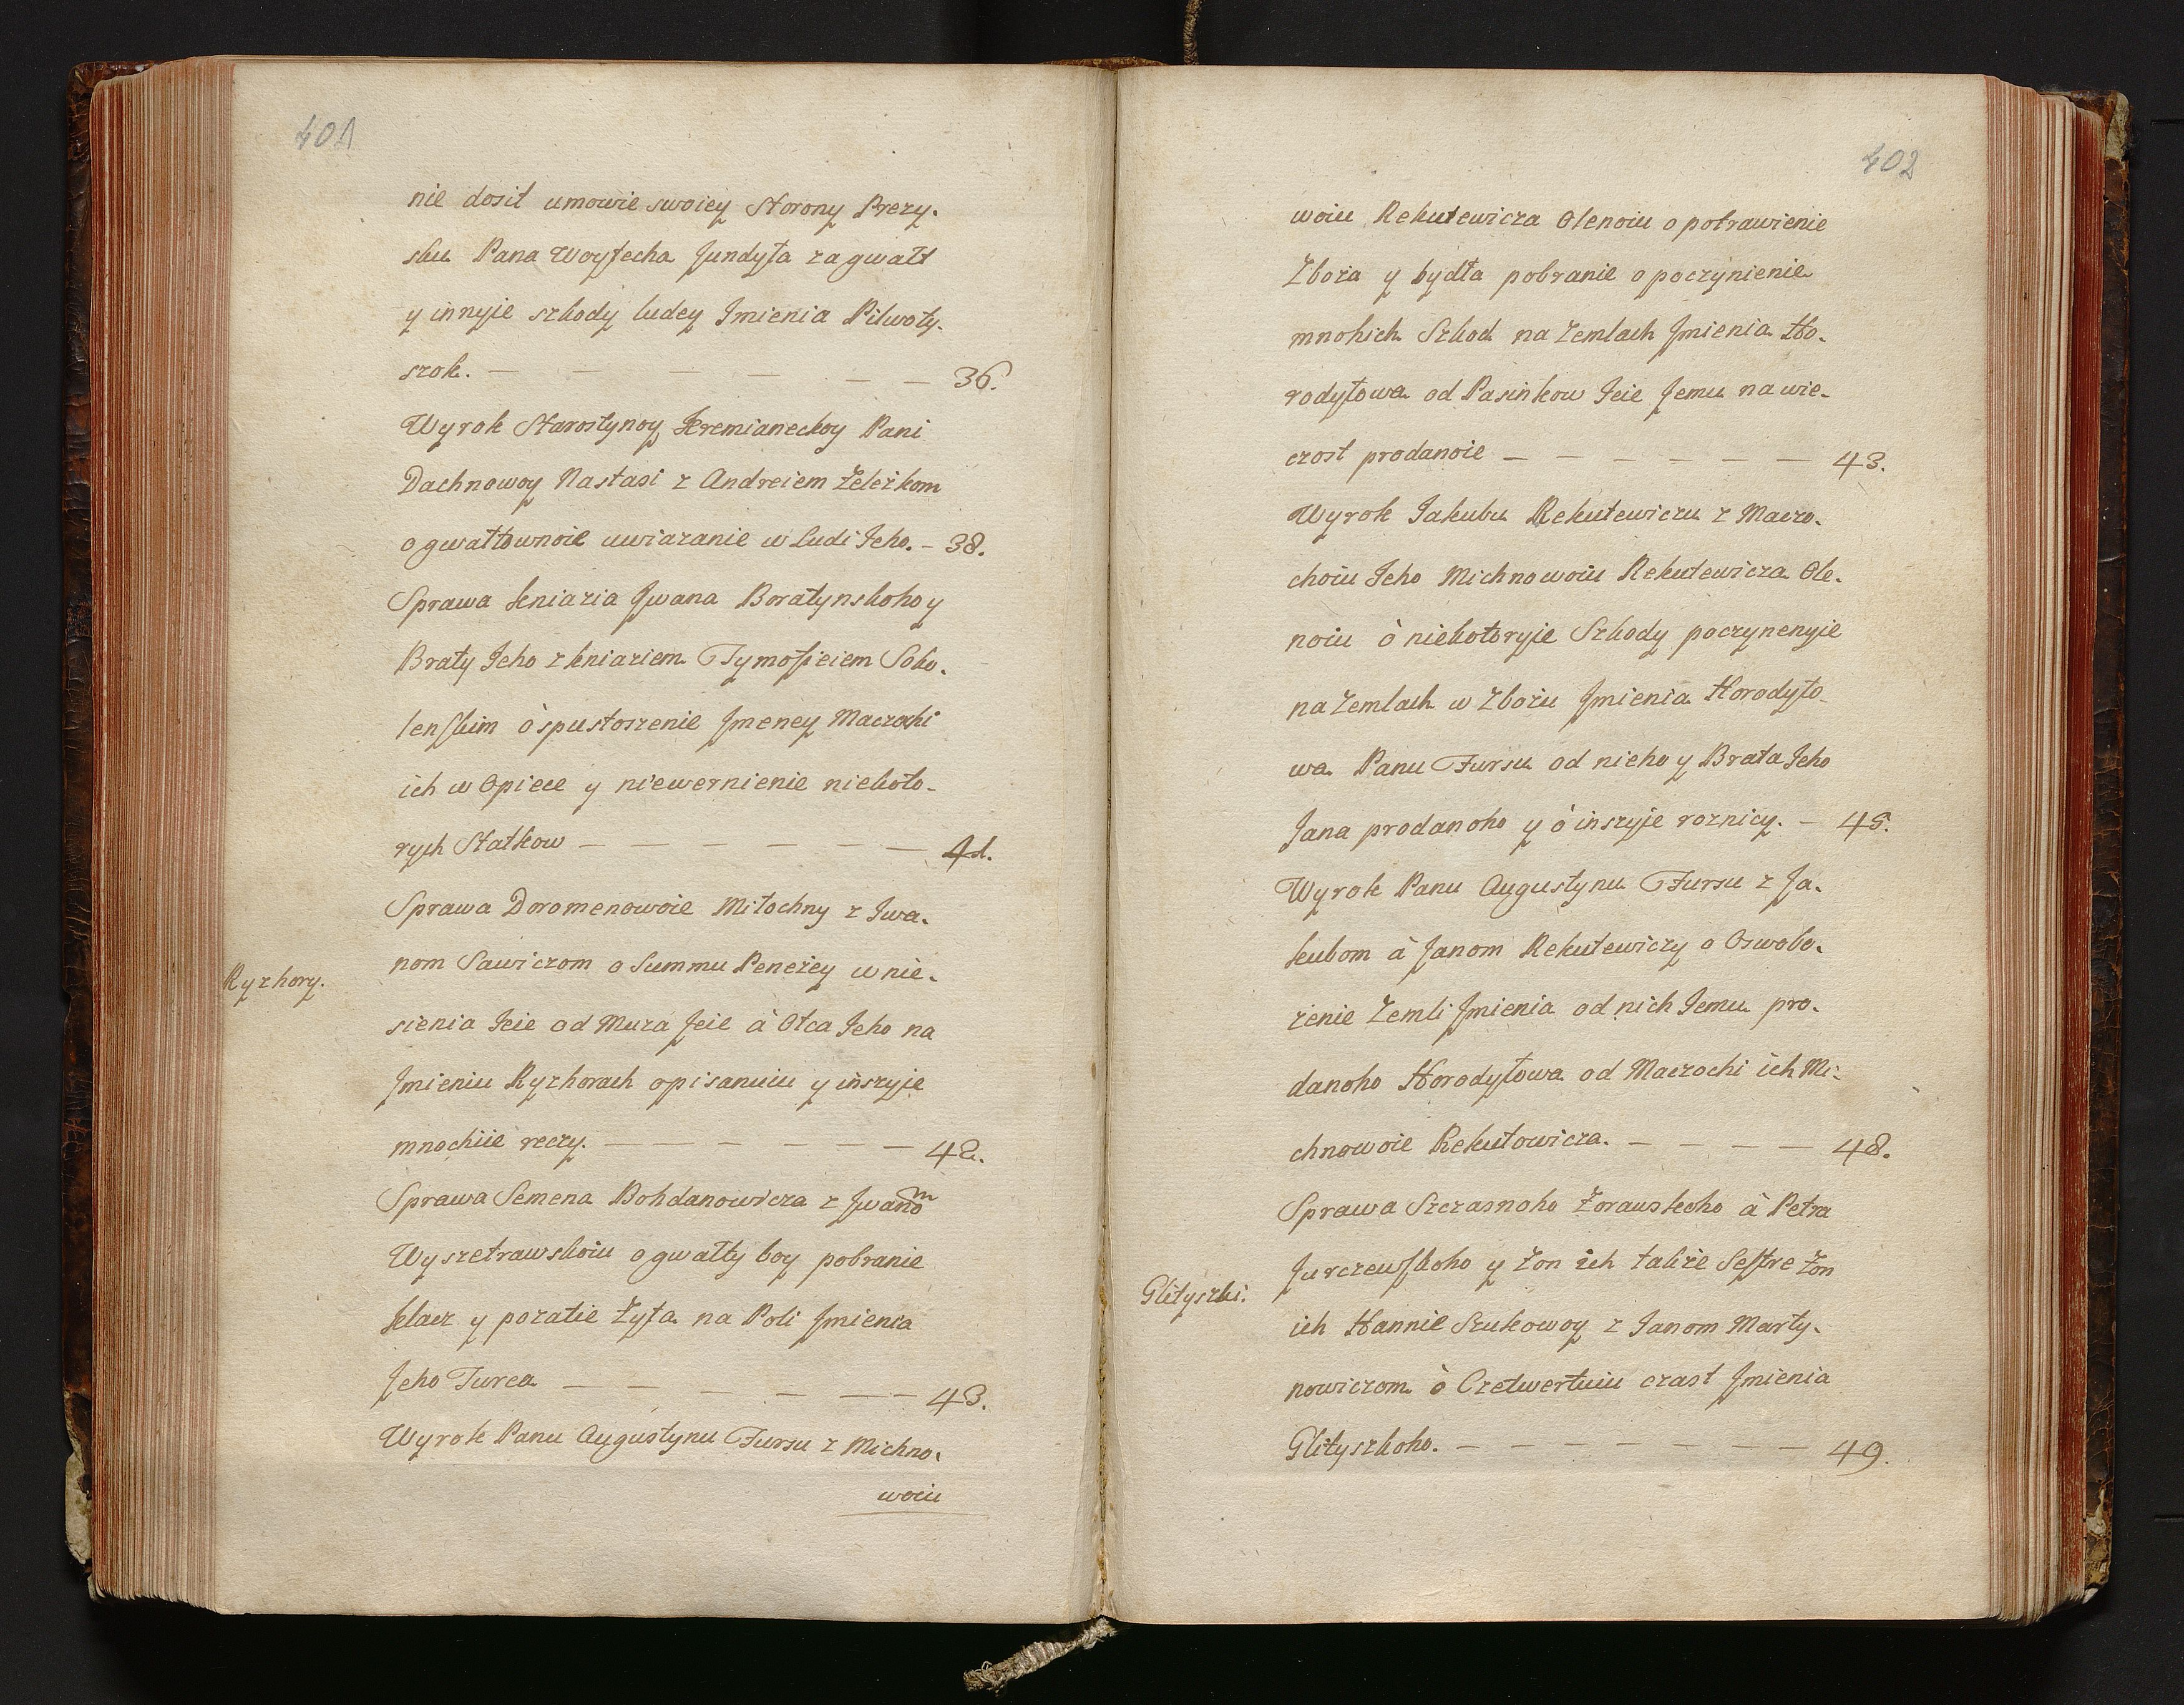 401
nie dosit umowie swoiey Storony Przy-
sku Pana Woytecha Jundyła za gwałt
y innyie szkody ludey Imienia Pilwoty-
szok. — — — — — — 36.
Wyrok Starostynoy Kremianeckoy Pani
Dachnowoy Nastasi z Andreiem Żeleżkom
o gwałtownoie uwiazanie w Ludi Jeho. - 38.
Sprawa kniazia Jwana Boratynskoho y
Braty Jeho z kniaziem Tymofieiem Soko-
lenskim ò spustoszenie Jmeney Maczochi
ich w Opiece y niewernienie niekoto-
rych Statkow — — — — — — 41.
Sprawa Doromenowoie Miłochny z Iwa-
nom Sawiczom o Summu Peneżey wnie-
Ryzhory.
sienia Jeie od Muża Jeie à Otca Jeho na
Jmieniu Ryzhorach opisanuiu y inszyie
mnochiie reczy. — — — — — — 42.
Sprawa Semena Bohdanowicza z Jwanom
Wyszetrawskoiu o gwałty boy pobranie
klacz y pozatie Żyta na Poli Jmienia
Jeho Turca — — — — — — 43.
Wyrok Panu Augustynu Fursu z Michno-
woiu
402
woiu Rekutewicza Olenoiu o potrawienie
Zboża y bydła pobranie o poczynienie
mnohich Szkod na Zemlach Jmienia Ho-
rodyłowa od Pasinkow Jeie Jemu na wie-
czost prodanoie — — — — — — 43.
Wyrok Jakubu Rekutewiczu z Maczo-
choiu Jeho Michnowoiu Rekutewicza Ole-
noiu ò niekotoryie Szkody poczynenyie
na Zemlach w Zbożu Jmienia Horodyło-
wa Panu Fursu od nieho y Brata Jeho
Jana prodanoho y ò inszyie roznicy. — 45.
Wyrok Panu Augustynu Fursu z Ja-
kubom à Janom Rekutewiczy o Oswobo-
żenie Zemli Jmienia od nich Jemu pro-
danoho Horodyłowa od Maczochi ich Mi-
chnowoie Rekutowicza. — — — — 48.
Sprawa Szczasnoho Żorawskoho à Petra
Jurczewskoho y Żon ich także Sestre Żon
Glityszki.
ich Hannie Szukowoy z Janom Marty-
nowiczom ò Czetwertuiu czast Jmienia
Glityszkoho. — — — — — — — 49.